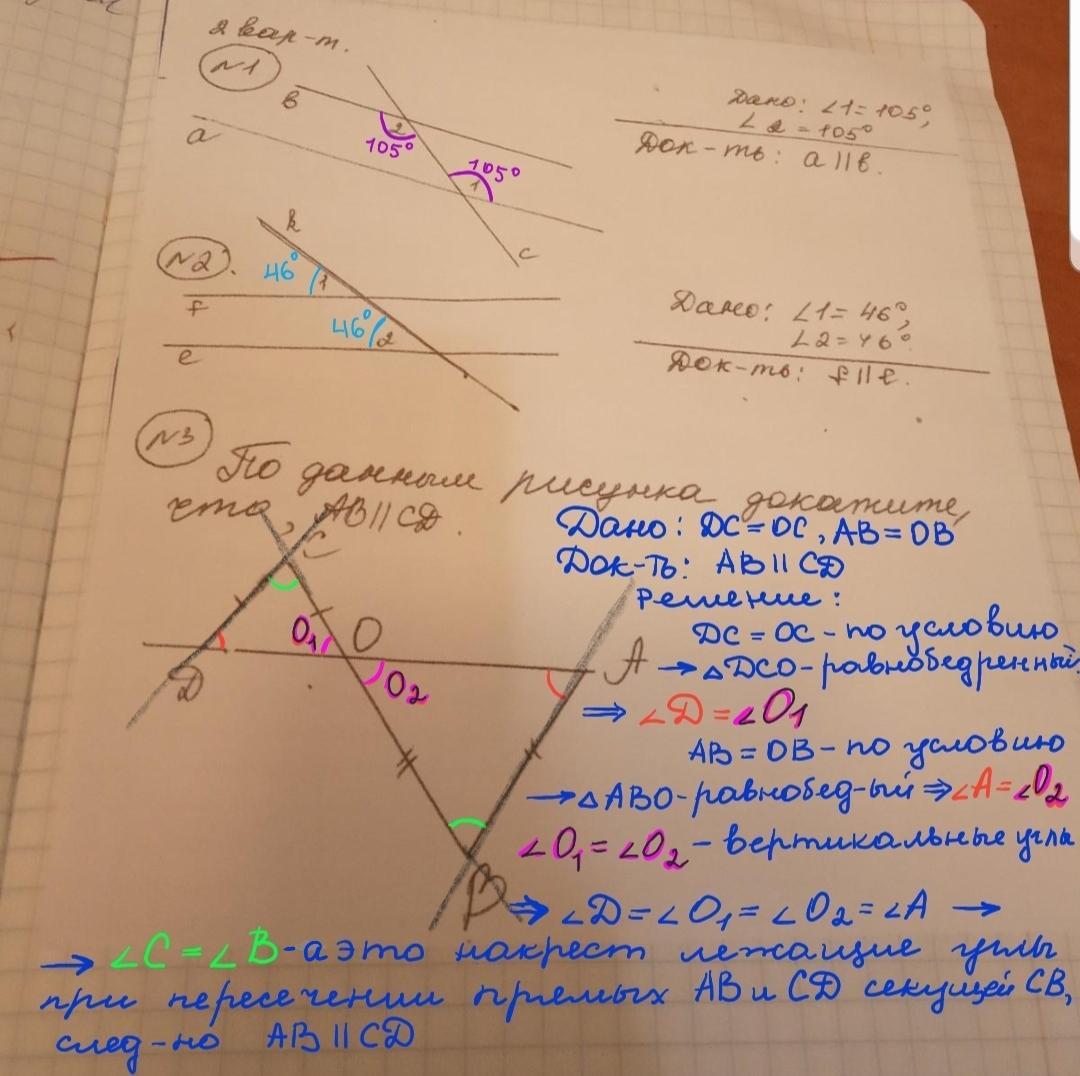 2 вар-т.
N1
b
a
c
2
105°
105°
1
Дано: ∠1=105°,
∠2=105°
Док-ть: a||b.
N2.
k
46°
1
f
46°
2
e
Дано: ∠1=46°,
∠2=46°.
Док-ть: f||e.
N3
По данным рисунка докажите,
что, AB||CD.
C
O1
O
O2
D
A
B
Дано: DC=OC, AB=OB
Док-ть: AB||CD
Решение:
DC=OC-по условию
→△DCO-равнобедренный.
⇒ ∠D=∠O1
AB=OB-по условию
→△ABO-равнобед-ый⇒∠A=∠O2
∠O1=∠O2-вертикальные углы
⇒∠D=∠O1=∠O2=∠A →
→ ∠C=∠B-а это накрест лежащие углы
при пересечении прямых AB и CD секущей CB,
след-но AB||CD